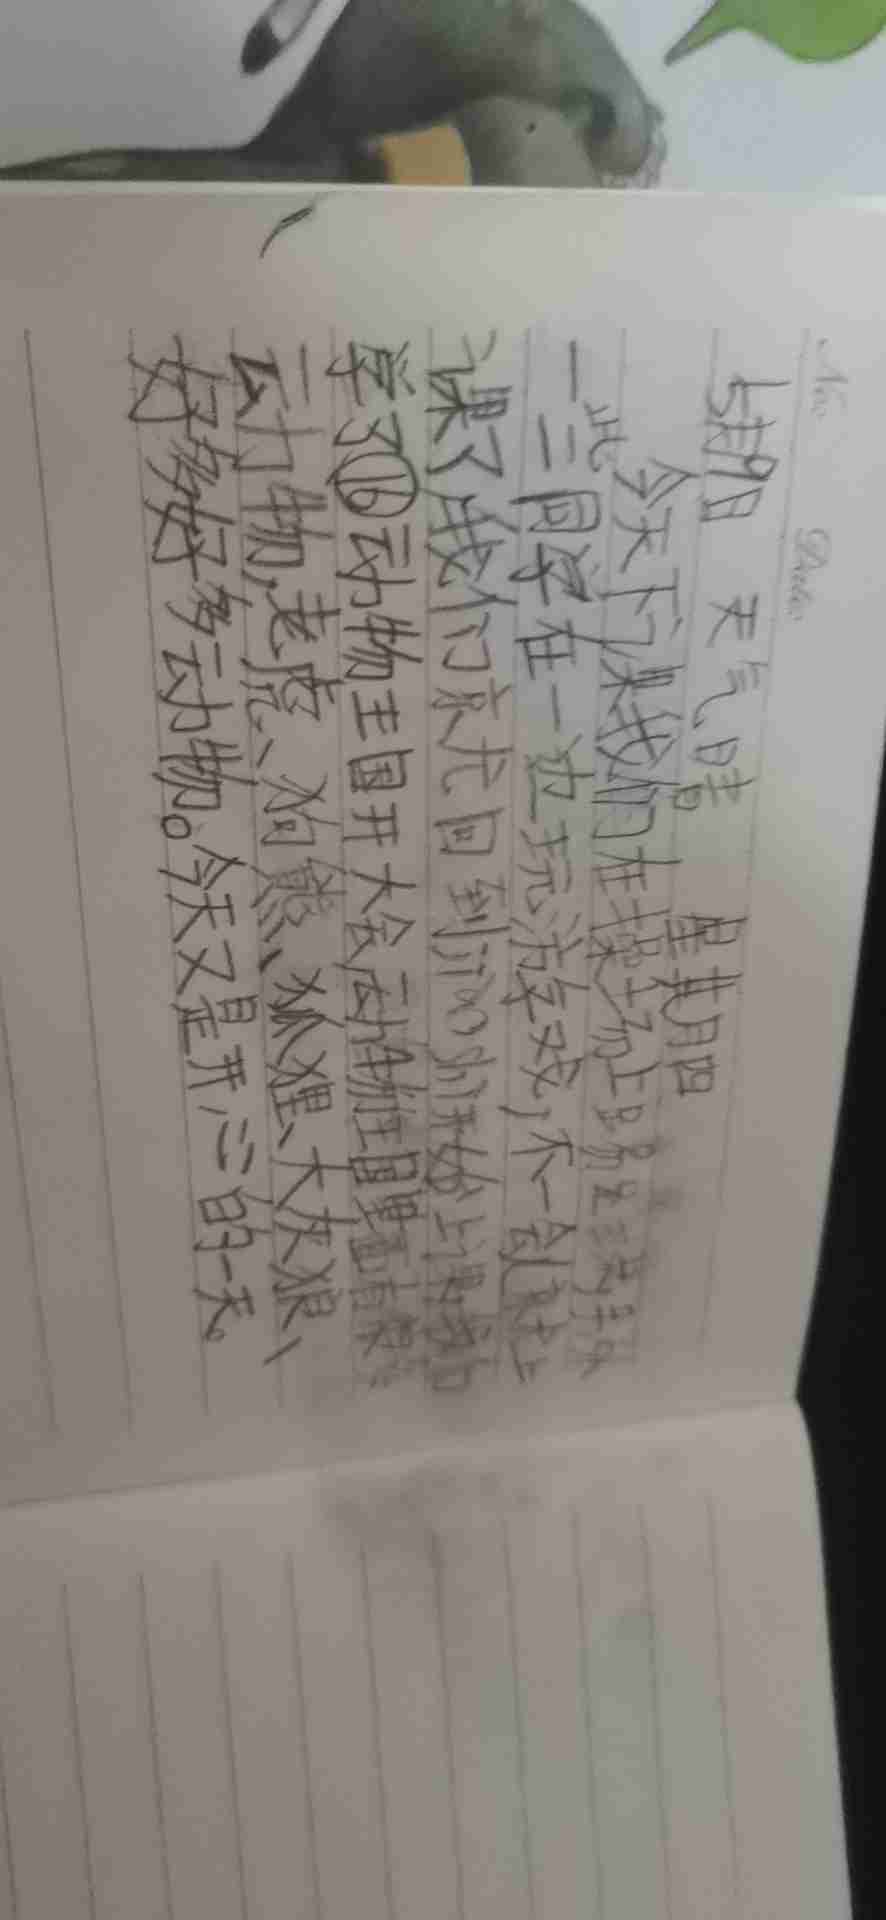 No. Date
5月9日 天气晴 星期四
今天下课我们在操场上
一些同学在一边玩游戏,不一会就上
课了我们京尤回到 开始上课
学了⑯动物王国开大会动物王国里面有很
动物,老虎、狗熊、狐狸、大灰狼、
好多好多动物。今天又是开心的一天。